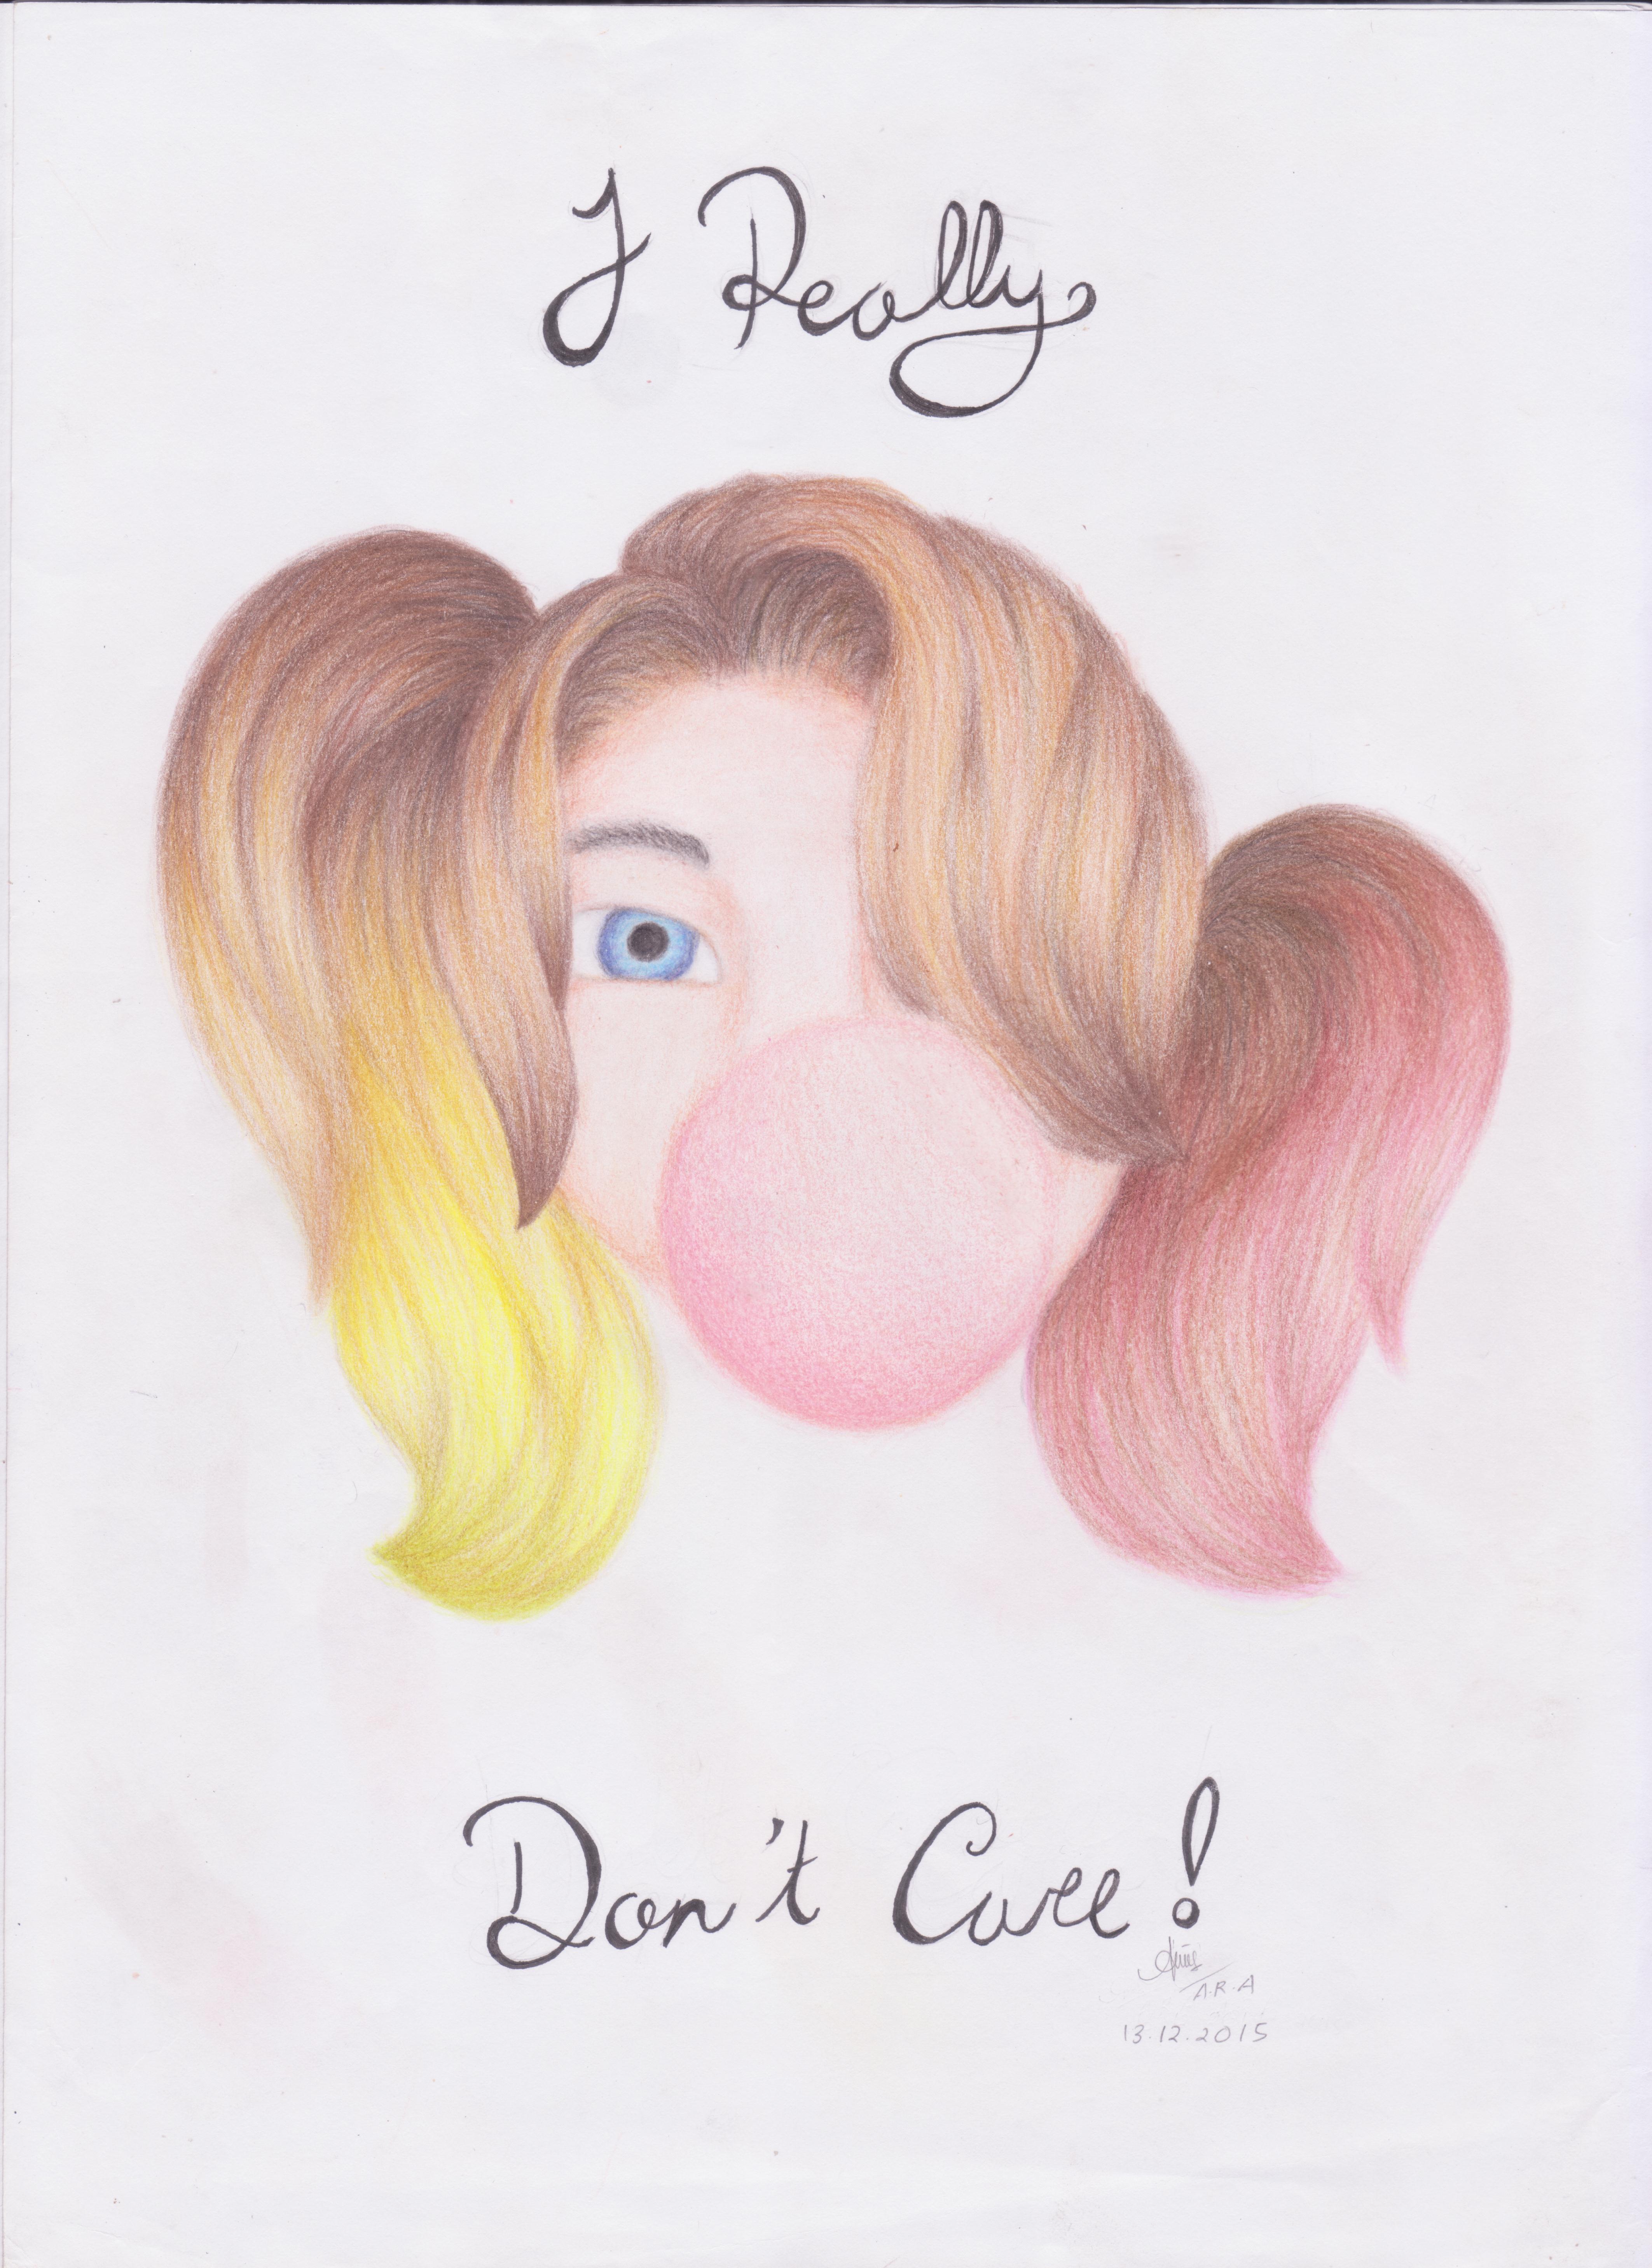 I Really
Don't Care!
A.R.A
13.12.2015